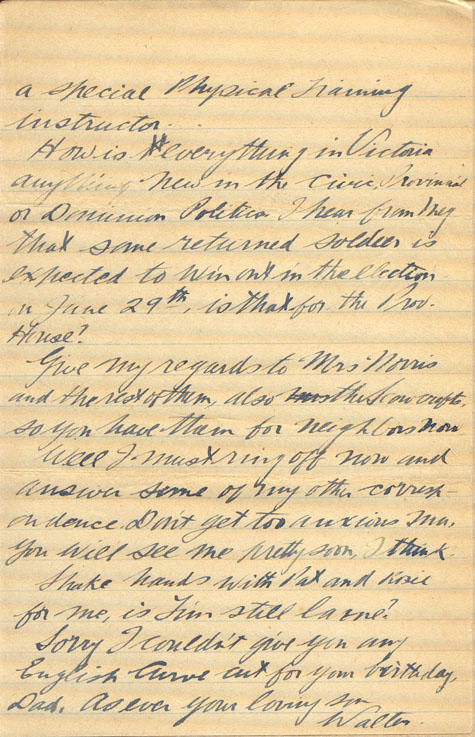 a special Physical Training
instructor.
How is everything in Victoria
anything new in the Civic, Provincial
or Dominion Politics I hear from Meg
that some returned soldier is
expected to win out in the election
on June 29th, is that for the Prov.
House?
Give my regards to Mrs Norris
and the rest of them also the
so you have them for neighbors now
Well I must ring off now and
answer some of my other corresp-
ondence. Don't get too anxious Ma,
you will see me pretty soon, I think.
Shake hands with Pat and Rosie
for me, is Jim still lame?
Sorry I couldn't give you any
English Curve cut for your birthday,
Dad. As ever your loving son
Walter.